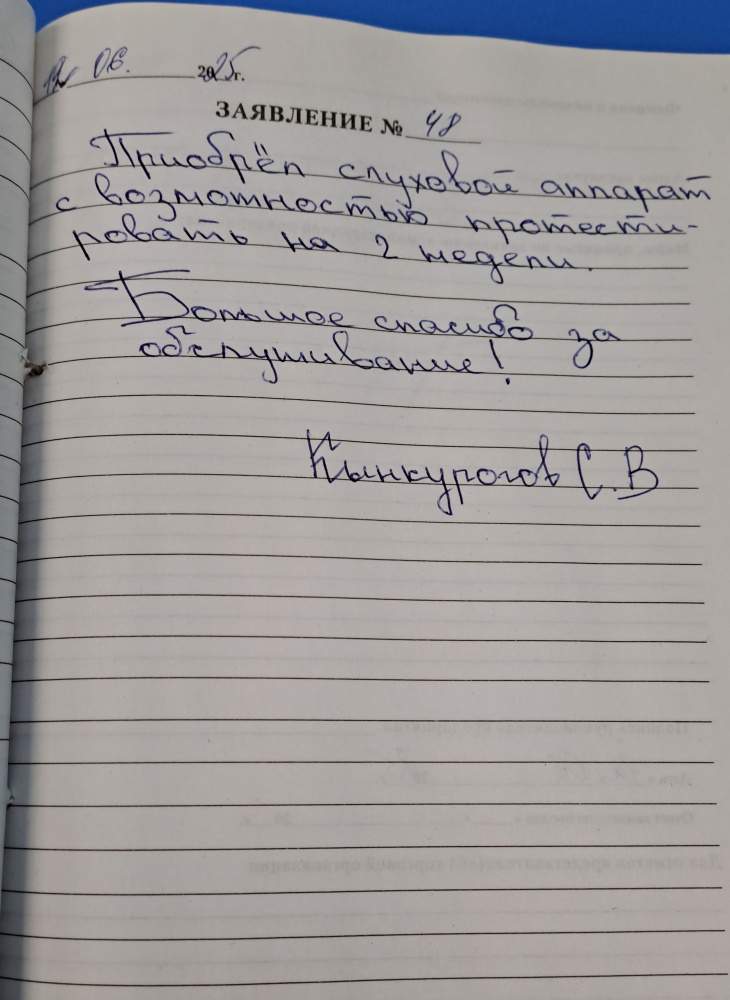 12 06. 2025г.
ЗАЯВЛЕНИЕ № 48
Приобрёл слуховой аппарат
с возможностью протести-
ровать на 2 недели.
Большое спасибо за
обслуживание!
С.В